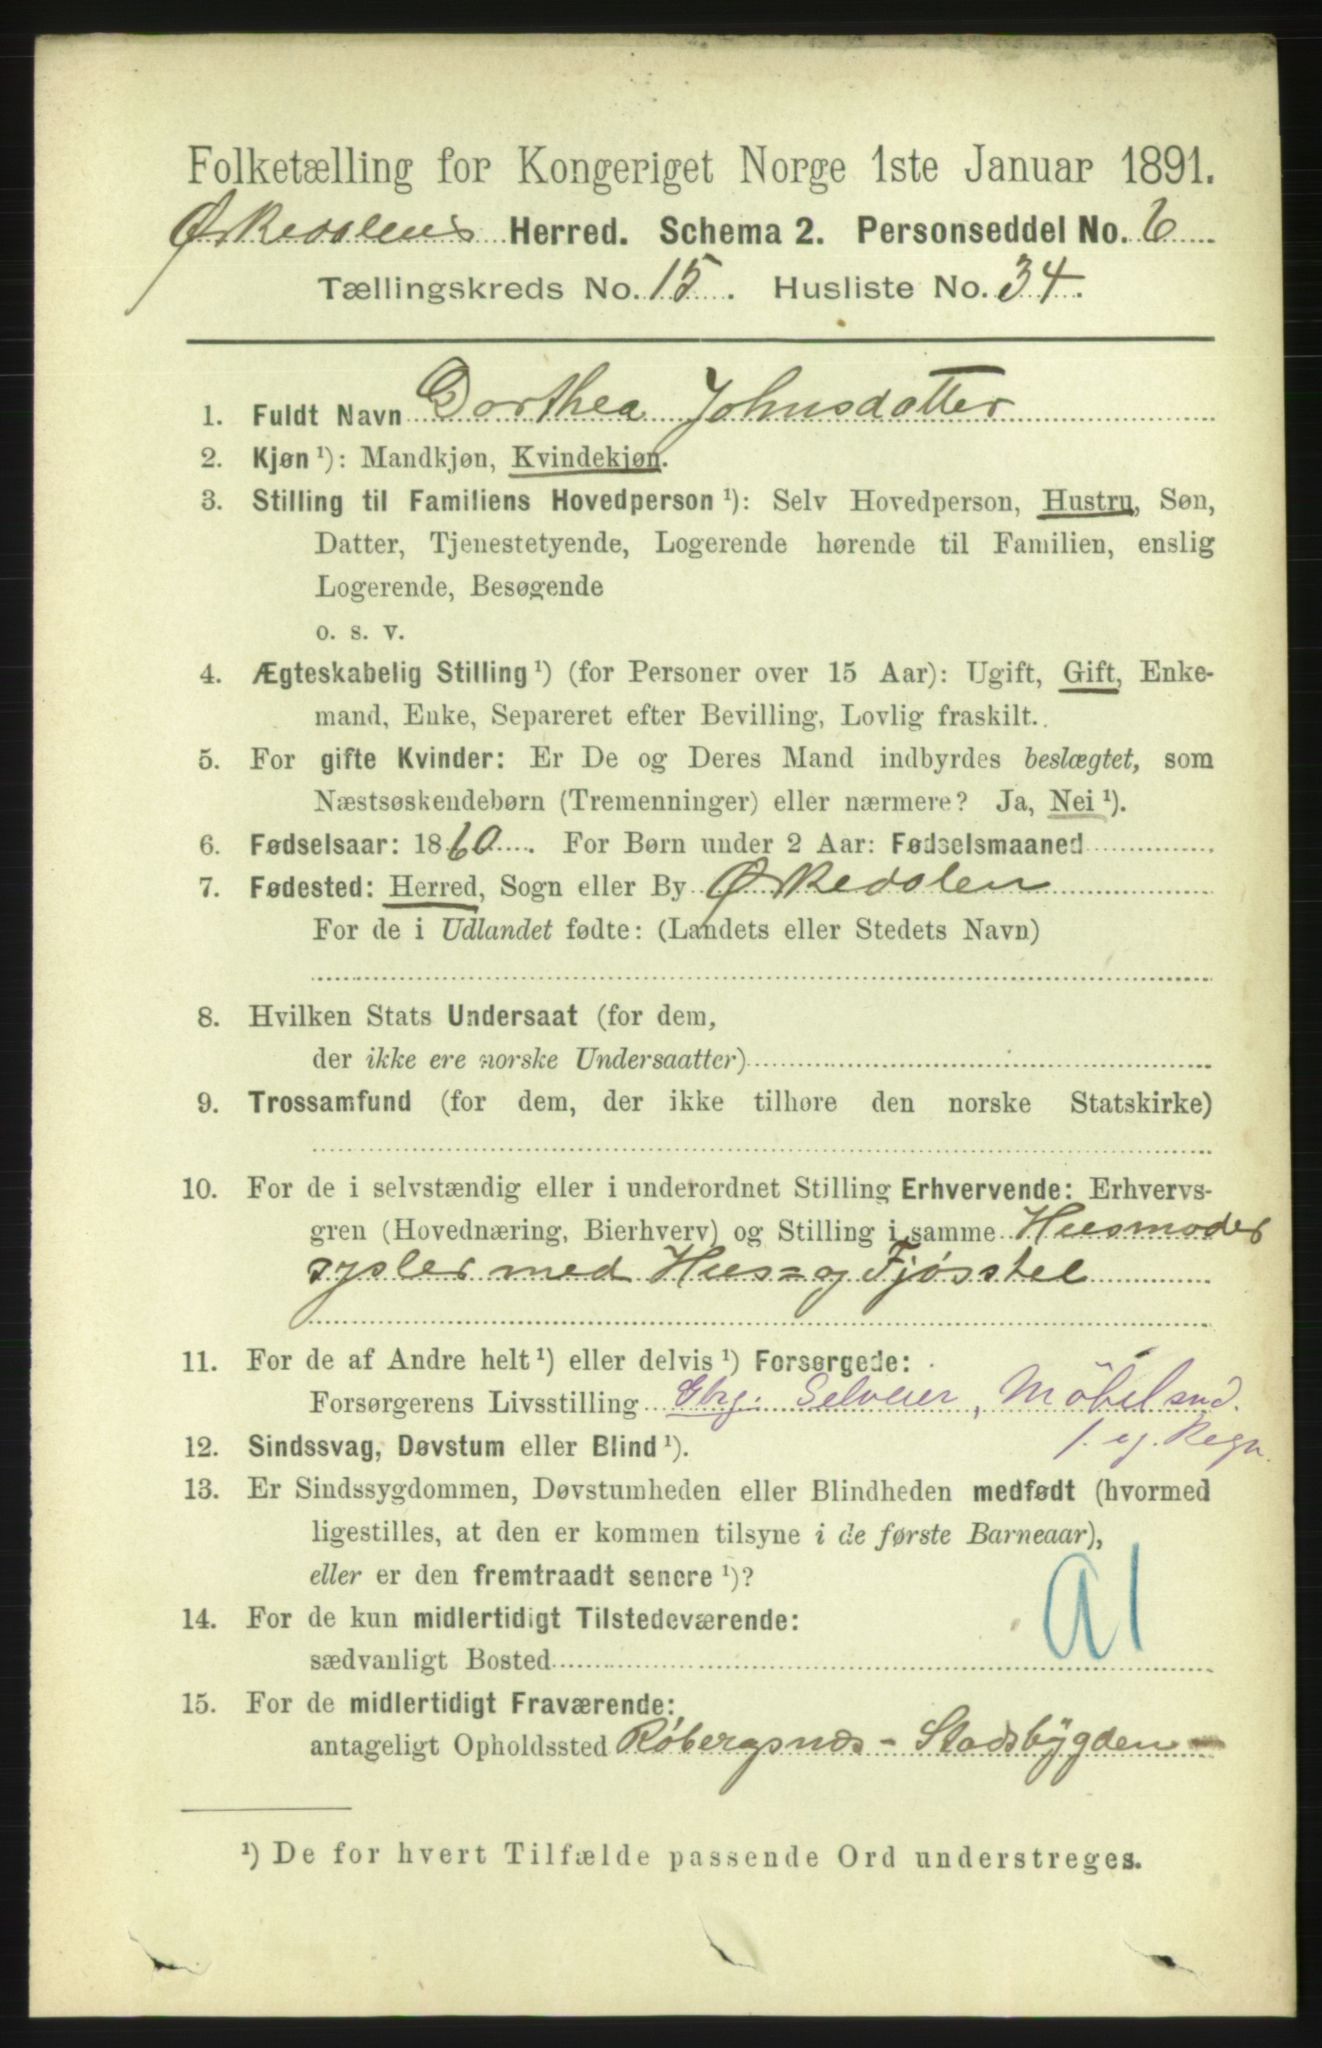 Folketælling for Kongeriget Norge 1ste Januar 1891.
Ørkedalens Herred. Schema 2. Personseddel No. 6
Tællingskreds No. 15. Husliste No. 34.
1. Fuldt Navn Dorthea Johnsdatter
2. Kjøn ¹): Mandkjøn, Kvindekjøn.
3. Stilling til Familiens Hovedperson ¹): Selv Hovedperson, Hustru, Søn,
Datter, Tjenestetyende, Logerende hørende til Familien, enslig
Logerende, Besøgende
o. s. v.
4. Ægteskabelig Stilling ¹) (for Personer over 15 Aar): Ugift, Gift, Enke-
mand, Enke, Separeret efter Bevilling, Lovlig fraskilt.
5. For gifte Kvinder: Er De og Deres Mand indbyrdes beslægtet, som
Næstsøskendebørn (Tremenninger) eller nærmere? Ja, Nei ¹).
6. Fødselsaar: 1860. For Børn under 2 Aar: Fødselsmaaned
7. Fødested: Herred, Sogn eller By Ørkedalen
For de i Udlandet fødte: (Landets eller Stedets Navn)
8. Hvilken Stats Undersaat (for dem,
der ikke ere norske Undersaatter)
9. Trossamfund (for dem, der ikke tilhøre den norske Statskirke)
10. For de i selvstændig eller i underordnet Stilling Erhvervende: Erhvervs-
gren (Hovednæring, Bierhverv) og Stilling i samme Husmoder
sysler med Hus= og Fjøsstel
11. For de af Andre helt ¹) eller delvis ¹) Forsørgede:
Forsørgerens Livsstilling Gbrg. Selveier, Möbelsnd.
f. eg. Regn.
12. Sindssvag, Døvstum eller Blind ¹).
13. Er Sindssygdommen, Døvstumheden eller Blindheden medfødt (hvormed
ligestilles, at den er kommen tilsyne i de første Barneaar),
eller er den fremtraadt senere ¹)?
14. For de kun midlertidigt Tilstedeværende:
sædvanligt Bosted
a1
15. For de midlertidigt Fraværende:
antageligt Opholdssted Røbergsnæs - Stadsbygden
¹) De for hvert Tilfælde passende Ord understreges.